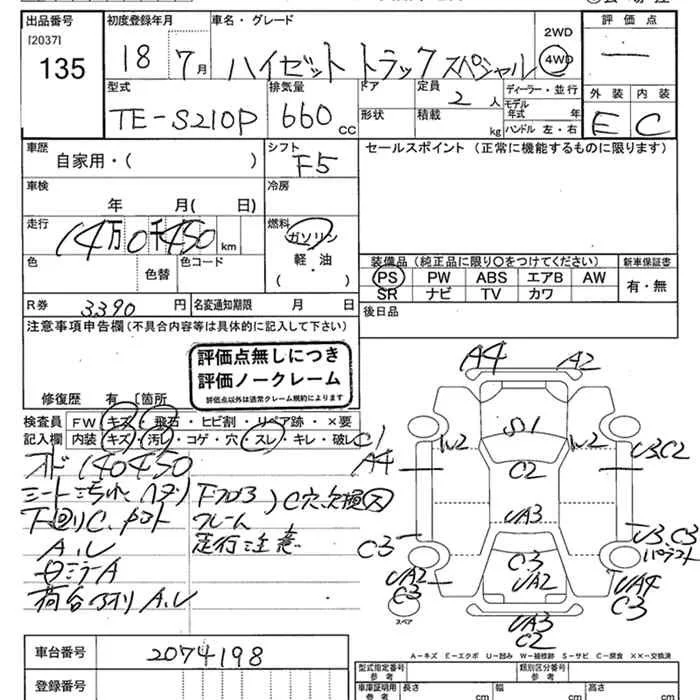 出品番号
[2037]
135
初度登録年月
18 7月
車名・グレード
ハイゼット トラック スペシャル
2WD
4WD
評価点
—
外装 内装
E C
型式
TE-S210P
排気量
660 cc
ドア
形状
定員
2人
積載
kg
ディーラー・並行
モデル年式 年
ハンドル 左・右
車歴
自家用・( )
シフト
F5
セールスポイント (正常に機能するものに限ります)
車検
年 月( 日)
冷房
走行
14万0千450km
燃料
ガソリン
軽油
( ・ )
色
色替
色コード
装備品 (純正品に限り〇をつけてください)
新車保証書
PS PW ABS エアB AW
SR ナビ TV カワ
有・無
R券 3390 円
名変通知期限 月 日
後日品
注意事項申告欄(不具合内容等は具体的に記入して下さい)
評価点無しにつき
評価ノークレーム
評価点以外は通常クレーム規約によります
修復歴 有 [箇所
検査員記入欄
FW キズ・飛石・ヒビ割・リペア跡・×要
内装 キズ・汚レ・コゲ・穴・スレ・キレ・破レ
オド 140450
シート汚れ ヘタリ
下回りC、
A.U
ミラーA
荷台 A.U
フロア)C穴、欠損
フレーム
走行注意
A4
A2
C1
A4
W2
S1
W2
C2
U3.C2
UA3
C3
U3.C3
UA2
C3
C3
UA2
UA4
C3
UA3
C2
スペア
A−キズ E−エクボ U−凹み W−補修跡 S−サビ C−腐食 ××−交換済
車台番号
2074198
登録番号
型式指定番号
参考
類別区分番号
参考
車庫証明用
参考
長さ cm
幅 cm
高さ cm